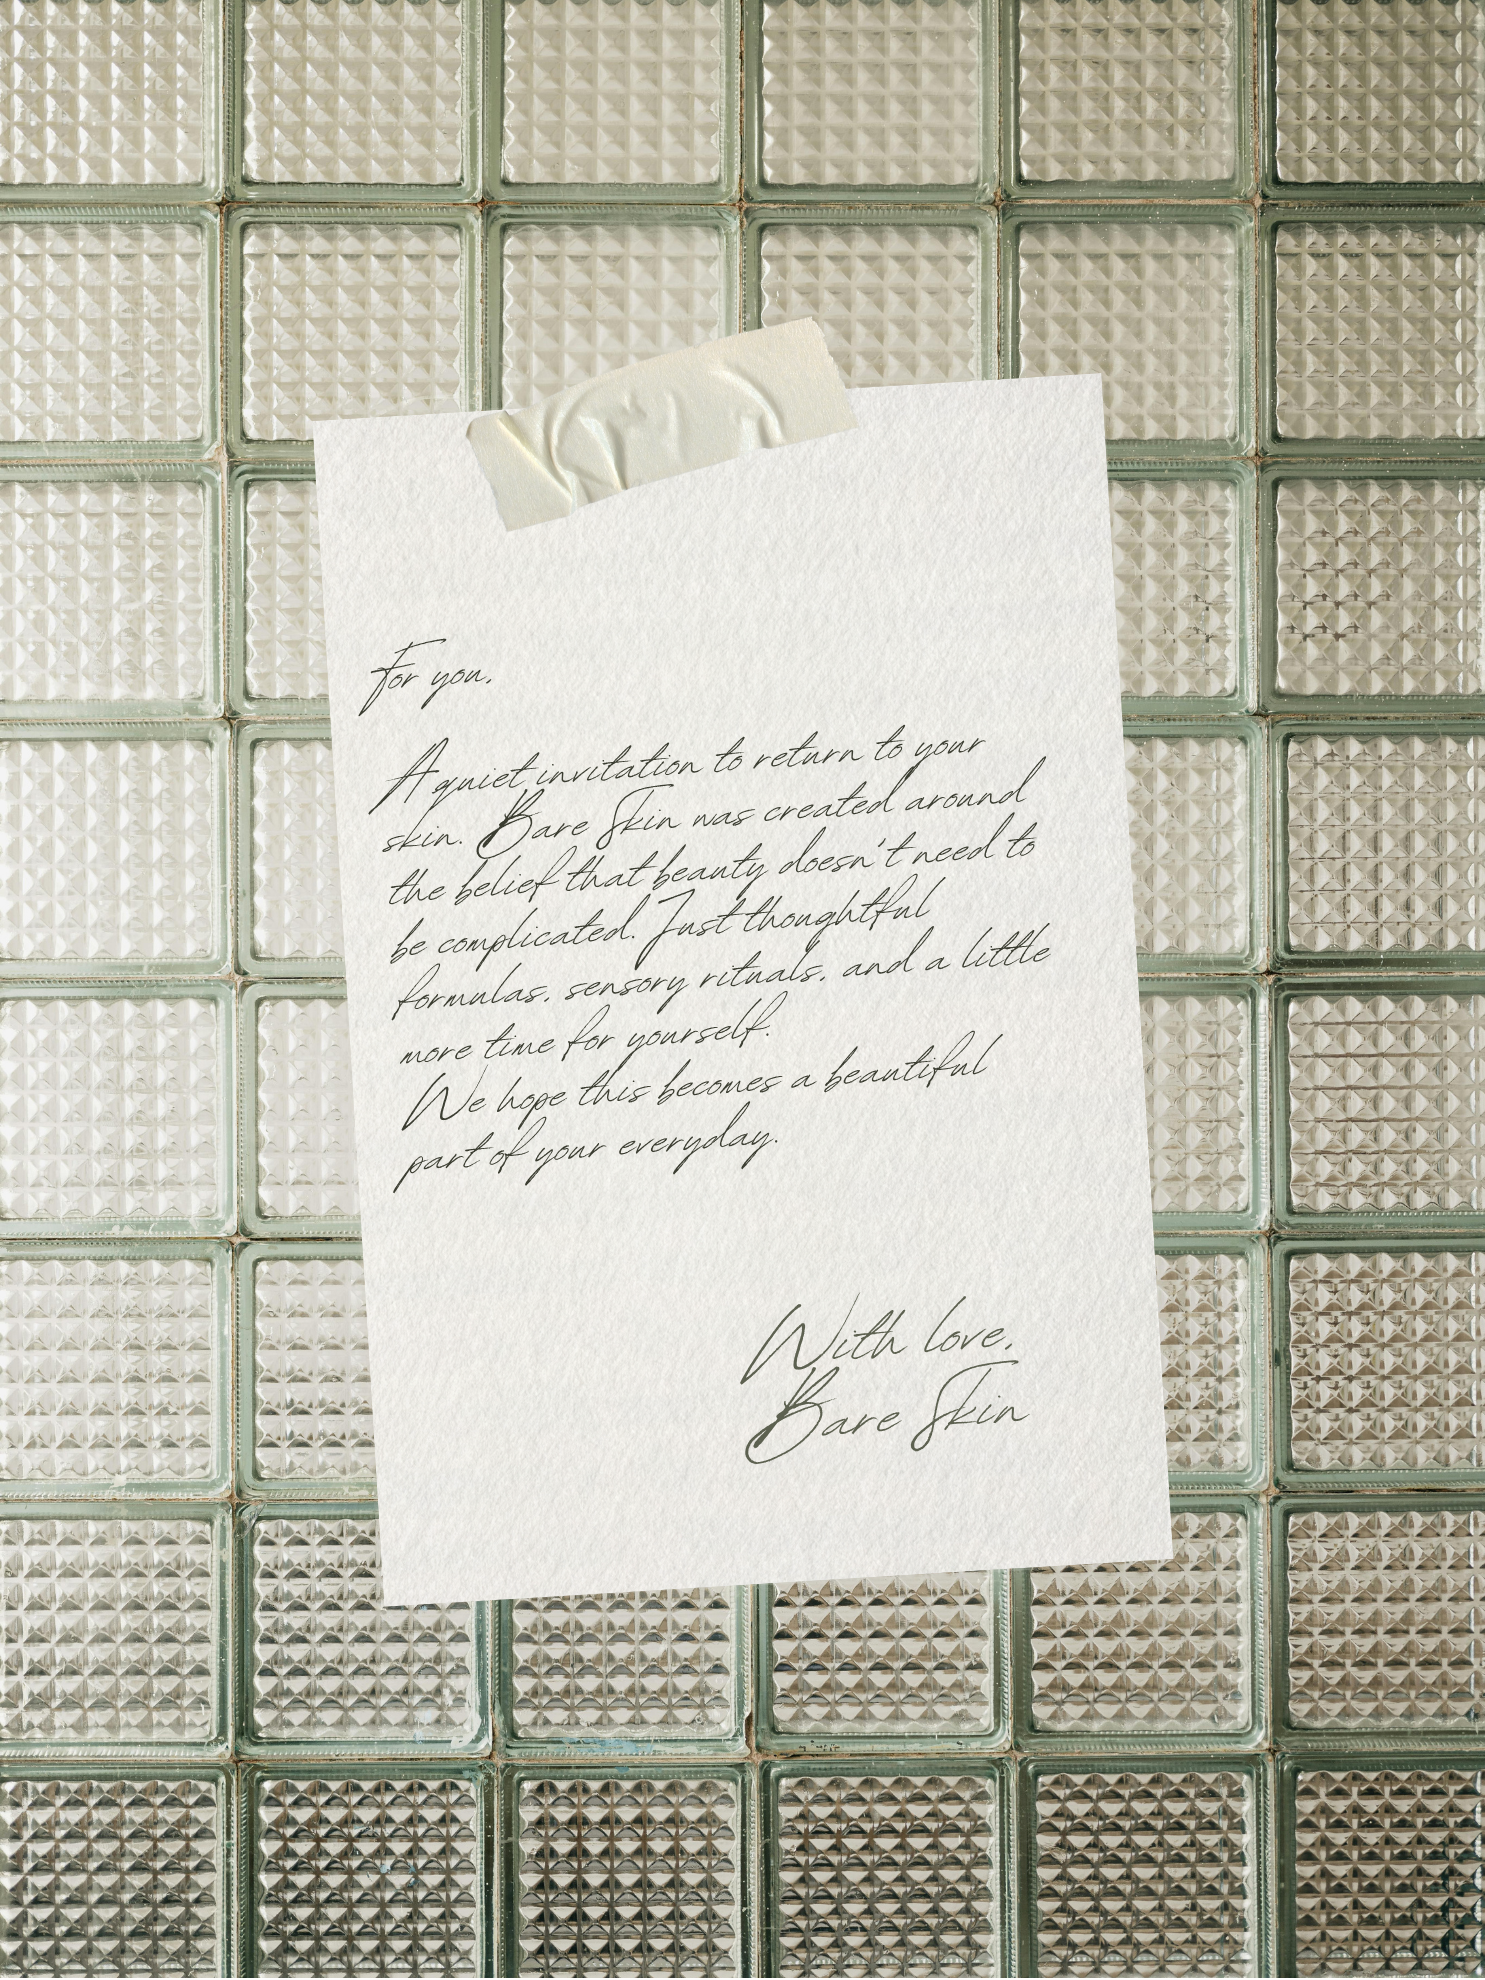 For you,
A quiet invitation to return to your
skin. Bare Skin was created around
the belief that beauty doesn't need to
be complicated. Just thoughtful
formulas, sensory rituals, and a little
more time for yourself.
We hope this becomes a beautiful
part of your everyday.
With love,
Bare Skin